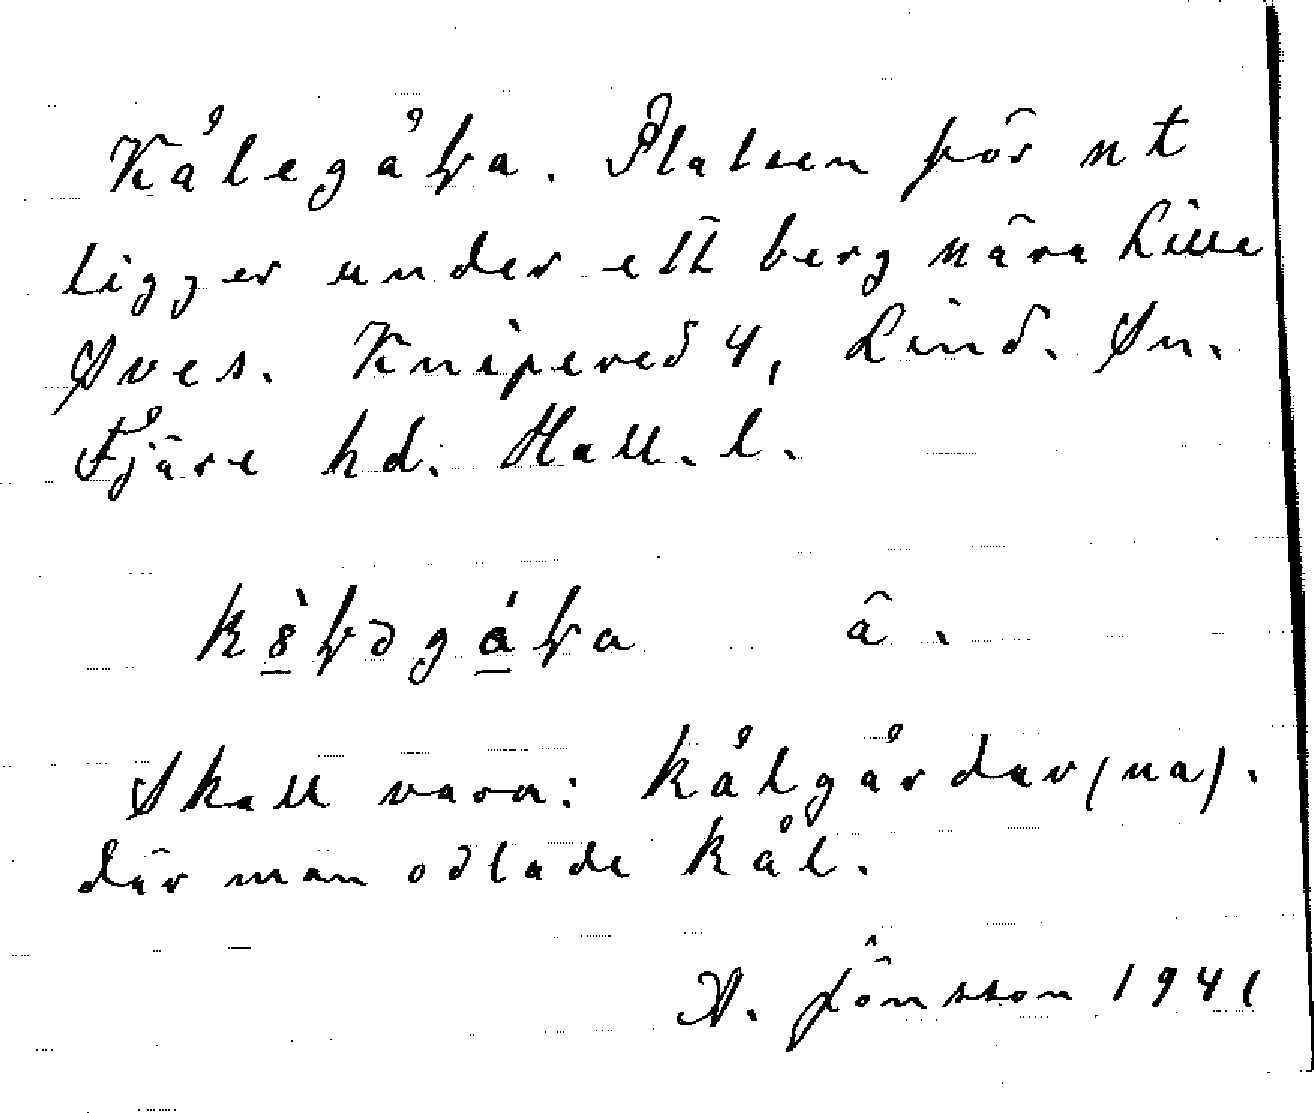 Kålegåła. Platsen för ut
ligger under ett berg nära Lille
Sves. Knipered 4, Lind. Sn.
Fjäre hd. Hall. l.
â.
Skall vara: kålgårdar(na).
där man odlade kål.
A. Jönsson 1941